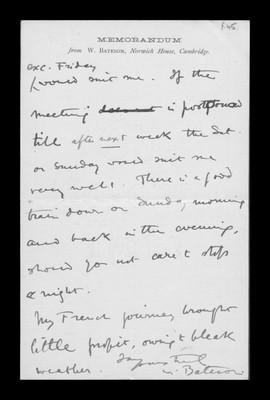 f.45.
MEMORANDUM
from W. BATESON, Norwich House, Cambridge.
exc. Friday
would suit me. If the
meeting is postponed
till after next week the Sat.
or Sunday would suit me
very well. There is a good
train down on Sunday morning
and back in the evening,
should you not care to stop
a night.
My French journey brought
little profit, owing to bleak
weather.
W. Bateson